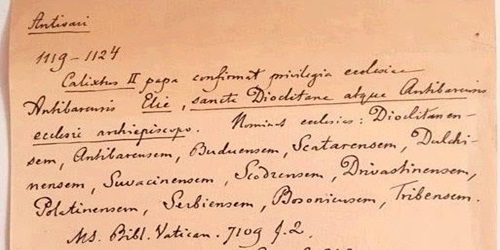 Antivari
1119-1124
Calixtus II papa confirmat privilegia ecclesiae
Antibarensis Elie, sancte Dioclitane atque Antibarensis
ecclesie archiepiscopo. Nominat ecclesias: Dioclitanen-
sem, Antibarensem, Buduensem, Scatarensem, Dulchi-
nensem, Suvacinensem, Scodrensem, Drivastinensem,
Polatinensem, Serbiensem, Bosoniensem, Tribensem.
Ms. Bibl. Vatican. 7109 f. 2.